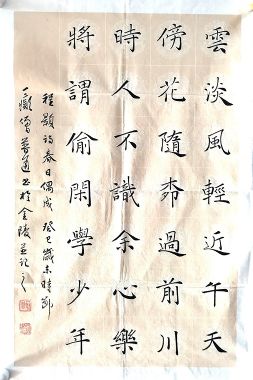 雲淡風輕近午天
傍花隨柰過前川
時人不識余心樂
將謂偷閑學少年
程顥詩春日偶成癸巳歲末時節
於金陵並記之